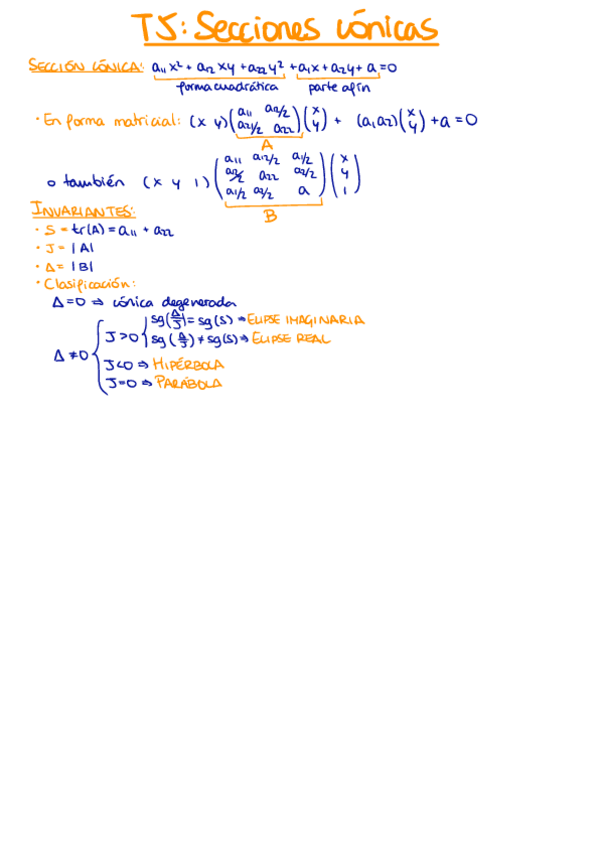 T5: Secciones cónicas
SECCIÓN CÓNICA: a₁₁x² + a₁₂xy + a₂₂y² + a₁x + a₂y + a = 0
forma cuadrática parte afín
· En forma matricial: (x y)(a₁₁ a₁₂/2
a₁₂/2 a₂₂)(x
y) + (a₁ a₂)(x
y) + a = 0
A
o también (x y 1)(a₁₁ a₁₂/2 a₁/2
a₁₂/2 a₂₂ a₂/2
a₁/2 a₂/2 a)(x
y
1)
B
INVARIANTES:
· S = tr(A) = a₁₁ + a₂₂
· J = |A|
· Δ = |B|
· Clasificación:
Δ=0 ⇒ cónica degenerada
Δ≠0 { J>0 { sg(Δ/J) = sg(S) ⇒ ELIPSE IMAGINARIA
sg(Δ/J) ≠ sg(S) ⇒ ELIPSE REAL
J<0 ⇒ HIPÉRBOLA
J=0 ⇒ PARÁBOLA